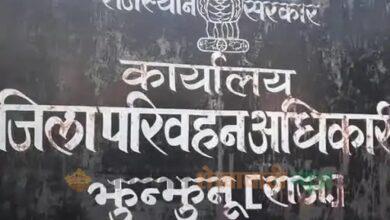 राजस्थान सरकार
कार्यालय
जिला परिवहन अधिकारी
झुन्झुनू [राज.]